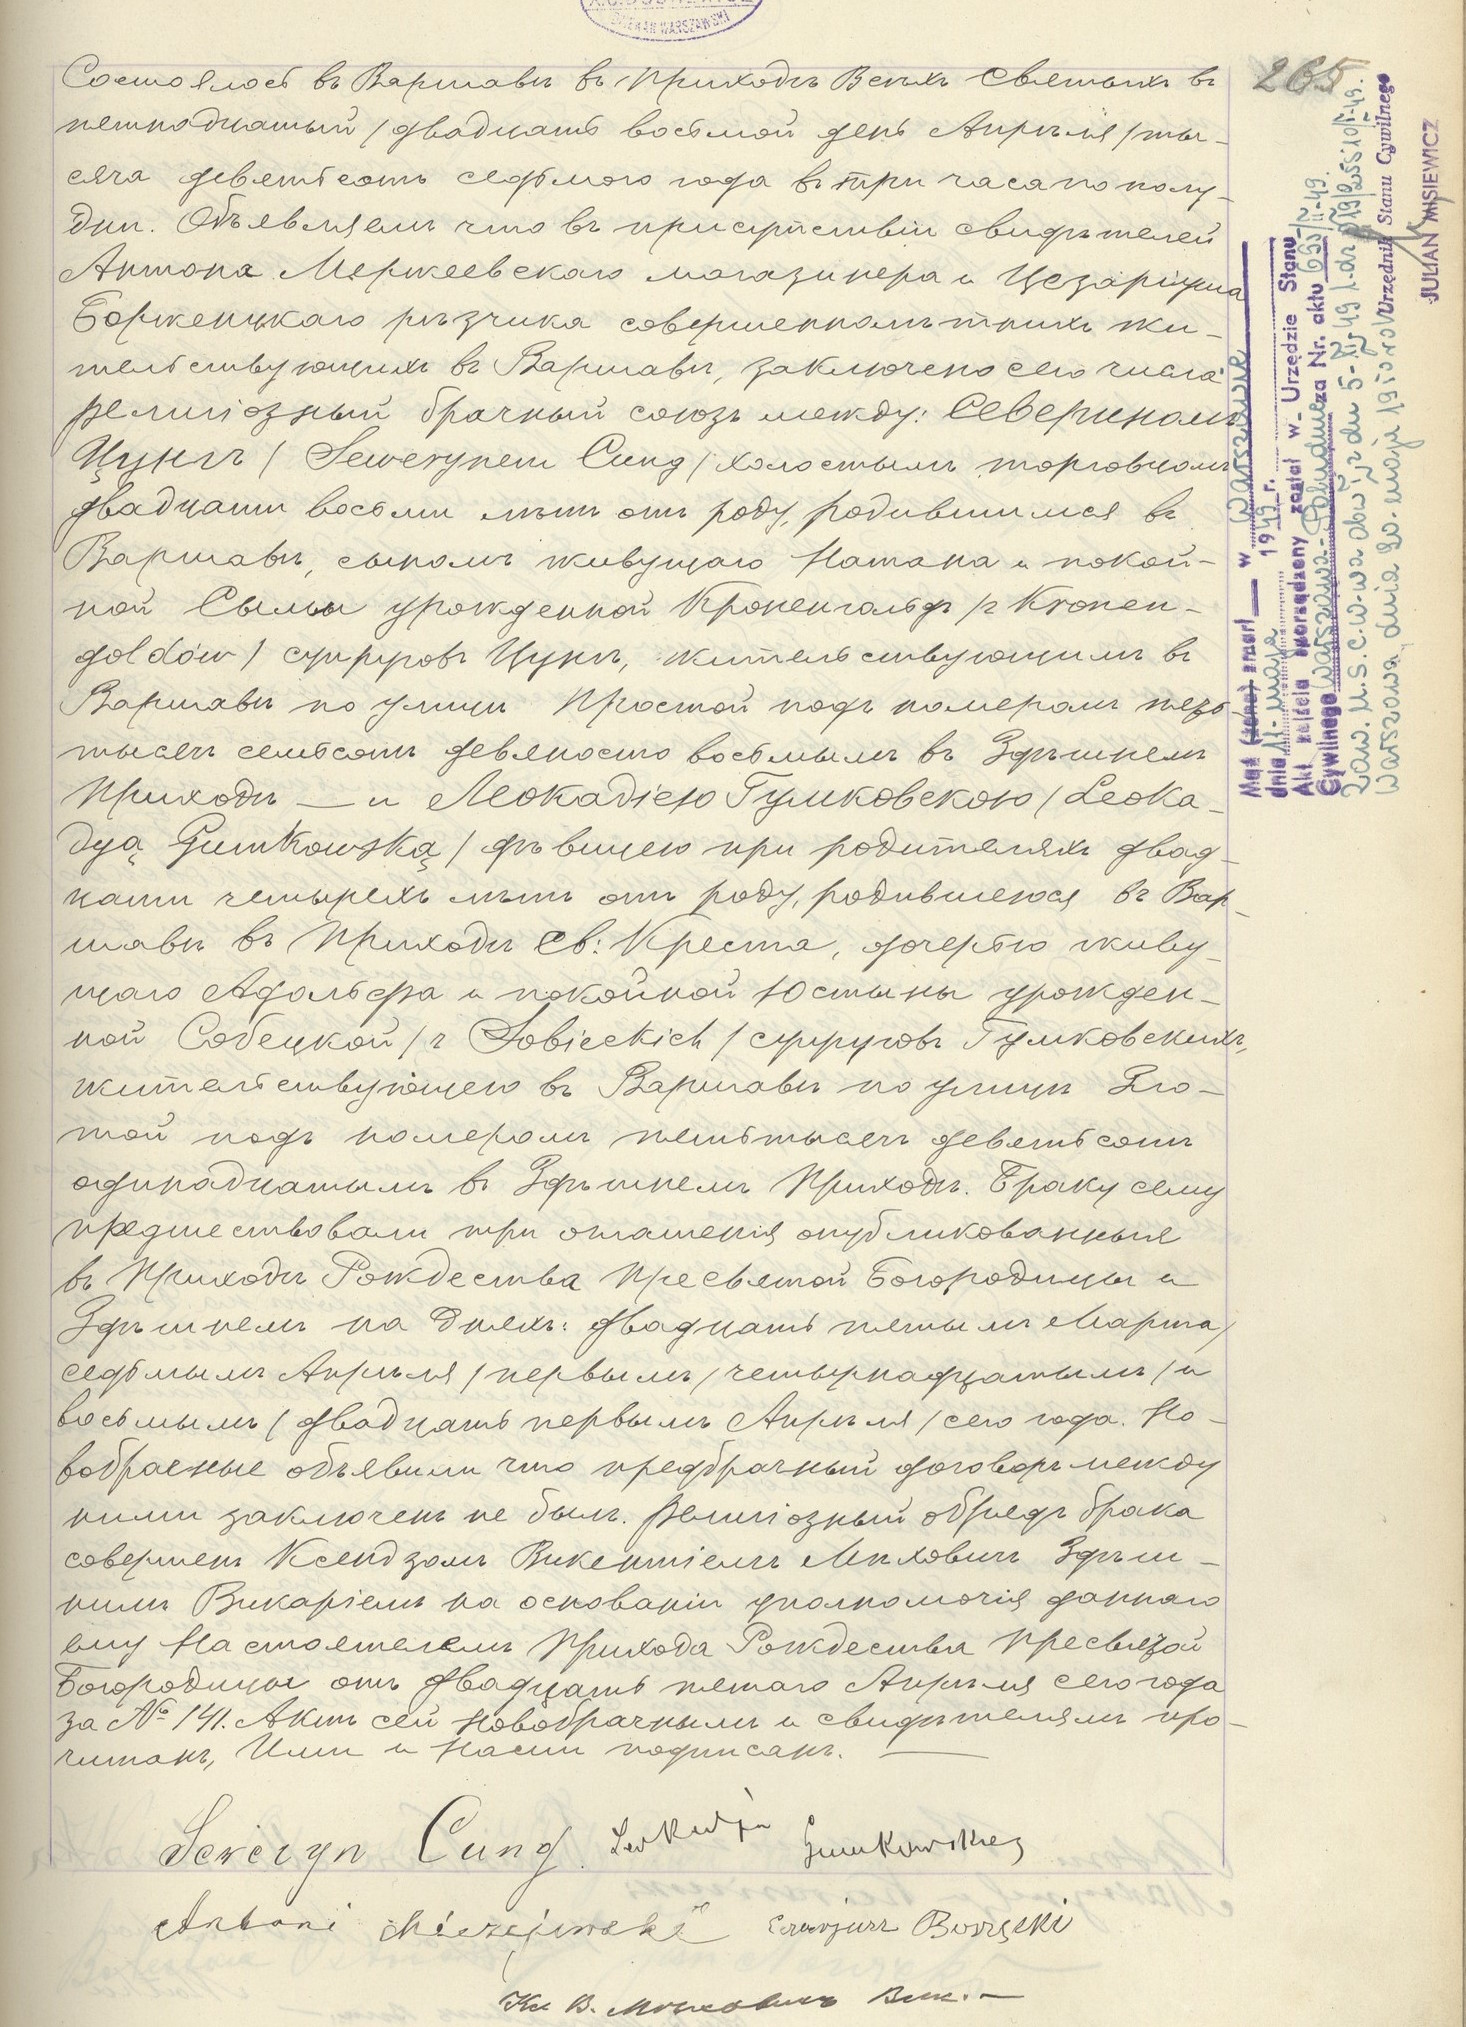 DZIEKAN WARSZAWSKI
265
Состоялось въ Варшавѣ въ Приходѣ Всѣхъ Святыхъ въ
пятнадцатый / двадцать восьмой день Апрѣля / ты-
сяча девятьсотъ седьмого года въ три часа по полу-
дни. Объявляемъ что въ присутствіи свидѣтелей
Антона Мержеевскаго магазинера и Цезаріуша
Борженцкаго рѣзчика совершеннолѣтнихъ жи-
тельствующихъ въ Варшавѣ, заключено сего числа
религіозный брачный союзъ между: Севериномъ
Цунгъ / Sewerynem Cung / холостымъ торговцомъ
двадцати восьми лѣтъ отъ роду, родившимся въ
Варшавѣ, сыномъ живущаго Натана и покой-
ной Сыльи урожденной Кроненгольдъ / z Kronen-
goldów / супруговъ Цунгъ, жительствующимъ въ
Варшавѣ по улицѣ Простой подъ номеромъ пять
тысячъ семьсотъ девяносто восьмымъ въ Здѣшнемъ
Приходѣ — и Леокадіею Гумковскою / Leoka-
dyą Gumkowską / дѣвицею при родителяхъ двад-
цати четырехъ лѣтъ отъ роду, родившеюся въ Вар-
шавѣ въ Приходѣ Св: Креста, дочерью живу-
щаго Адольфа и покойной Юстыны урожден-
ной Собецкой / z Sobieckich / супруговъ Гумковскихъ,
жительствующею въ Варшавѣ по улицѣ Зло-
той подъ номеромъ пятьтысячъ девятьсотъ
одинадцатымъ въ Здѣшнемъ Приходѣ. Браку сему
предшествовали три оглашенія опубликованныя
въ Приходѣ Рождества Пресвятой Богородицы и
Здѣшнемъ на дняхъ: двадцать пятымъ Марта /
седьмымъ Апрѣля / первымъ / четырнадцатымъ / и
восьмымъ / двадцать первымъ Апрѣля / сего года. Но-
вобрачные объявили что предбрачный договоръ между
ними заключенъ не былъ. Религіозный обрядъ брака
совершенъ Ксендзомъ Викентіемъ Миховичъ Здѣш-
нимъ Викаріемъ на основаніи уполномочія даннаго
ему Настоятелемъ Прихода Рождества Пресвятой
Богородицы отъ двадцать пятаго Апрѣля сего года
за № 141. Актъ сей Новобрачнымъ и свидѣтелямъ про-
читанъ, Ими и Нами подписанъ. —
Seweryn Cung. Leokadja Gumkowska
Antoni Mierzejewski Cezarjusz Borzęcki
Кс В. Миховичъ Вик. —
Mąż (żona) zmarł w Warszawie
dnia 11- maja 1949 r.
Akt zejścia sporządzony został w Urzędzie Stanu
Cywilnego Warszawa-Południe za Nr. aktu 693/II-49.
Warszawa, dnia 20- maja 1950 roku
Urzędnik Stanu Cywilnego
JULIAN MISIEWICZ